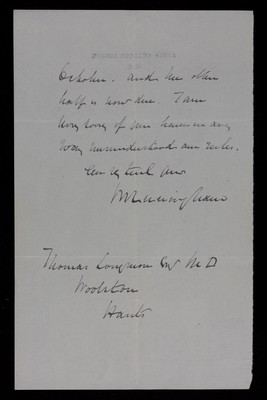 October. and the other
half is now due. I am
very sorry if you have in any
way misunderstood our rules.
Yours
Thomas Longmore Esq M D
Woolston
Hants